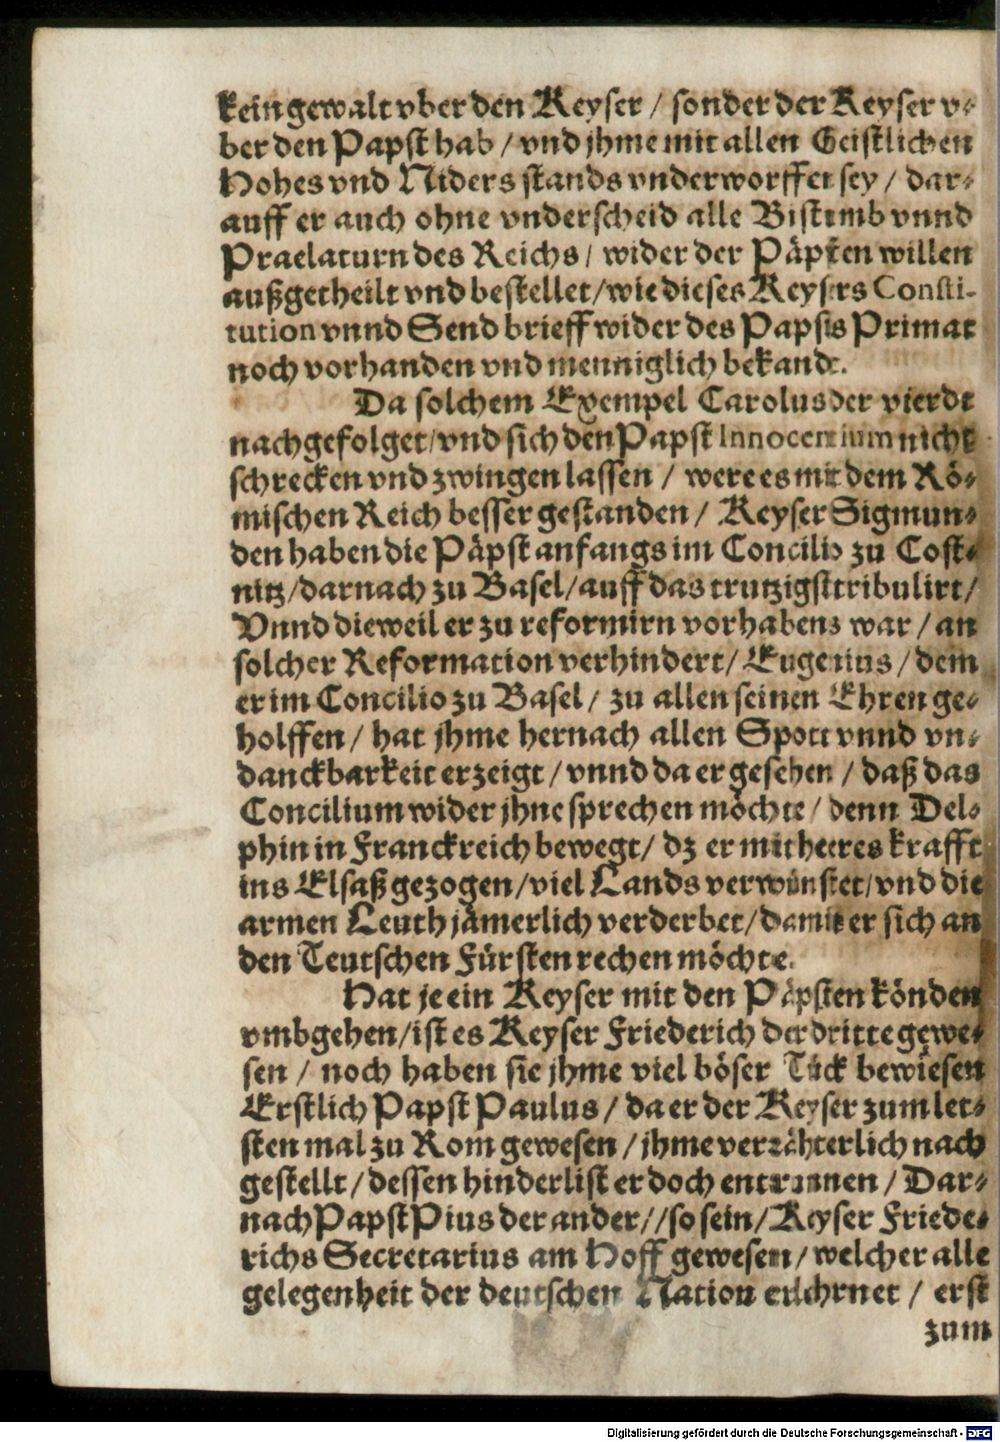 kein gewalt vber den Keyser / sonder der Keyser v⸗
ber den Papst hab / vnd jhme mit allen Geistlichen
Hohes vnd Niders stands vnderworffen sey / dar⸗
auff er auch ohne vnderscheid alle Bistumb vnnd
Praelaturn des Reichs / wider der Päpsten willen
außgetheilt vnd bestellet / wie dieses Keysers Consti-
tution vnnd Sendbrieff wider des Papsts Primat
noch vorhanden vnd menniglich bekandt.
Da solchem Exempel Carolus der vierdt
nachgefolget / vnd sich den Papst Innocentium nicht
schrecken vnd zwingen lassen / were es mit dem Rö⸗
mischen Reich besser gestanden / Keyser Sigmun⸗
den haben die Päpst anfangs im Concilio zu Cost⸗
nitz / darnach zu Basel / auff das trutzigst tribulirt /
Vnnd dieweil er zu reformirn vorhabens war / an
solcher Reformation verhindert / Eugenius / dem
er im Concilio zu Basel / zu allen seinen Ehren ge⸗
holffen / hat jhme hernach allen Spott vnnd vn⸗
danckbarkeit erzeigt / vnnd da er gesehen / daß das
Concilium wider jhne sprechen möchte / denn Del⸗
phin in Franckreich bewegt / dz er mit heeres krafft
ins Elsaß gezogen / viel Lands verwünstet / vnd die
armen Leuth jämerlich verderbet / damit er sich an
den Teutschen Fürsten rechen möchte.
Hat je ein Keyser mit den Päpsten könden
vmbgehen / ist es Keyser Friederich der dritte gewe⸗
sen / noch haben sie jhme viel böser Tück bewiesen
Erstlich Papst Paulus / da er der Keyser zum let⸗
sten mal zu Rom gewesen / jhme verrähterlich nach
gestellt / dessen hinderlist er doch entrunnen / Dar⸗
nach Papst Pius der ander / / so sein / Keyser Friede⸗
richs Secretarius am Hoff gewesen / welcher alle
gelegenheit der deutschen Nation erlehrnet / erst
zum
Digitalisierung gefördert durch die Deutsche Forschungsgemeinschaft - DFG